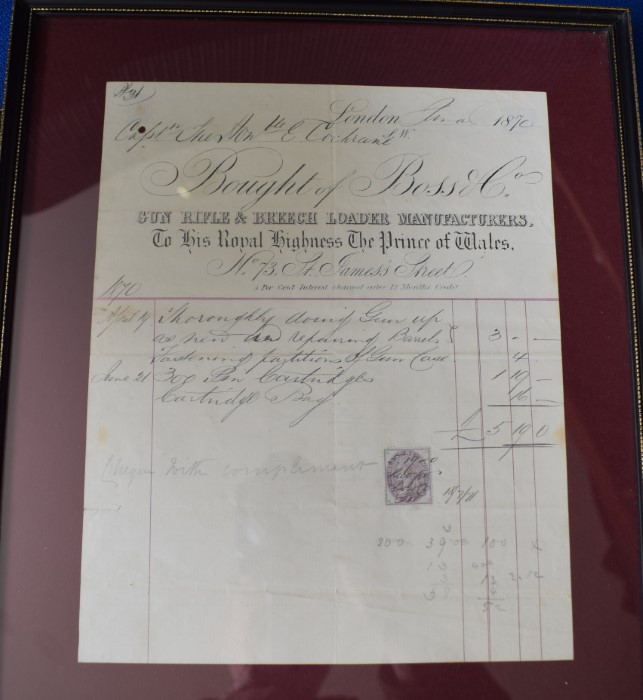 London 1870
Captn The Honble E Cochrane
Bought of Boss & Co.
GUN RIFLE & BREECH LOADER MANUFACTURERS,
To His Royal Highness The Prince of Wales,
No. 73, St. James's Street.
5 Per Cent Interest charged after 12 Months Credit
1870
April 19 Thoroughly doing Gun up
as new repairing Barrels 3 - -
Fastening partitions of Gun Case 4 -
June 21 300 Pin Cartridges 1 19 -
Cartridge Bag 16 -
£ 5 19 0
Cheque with compliment
200 39 100